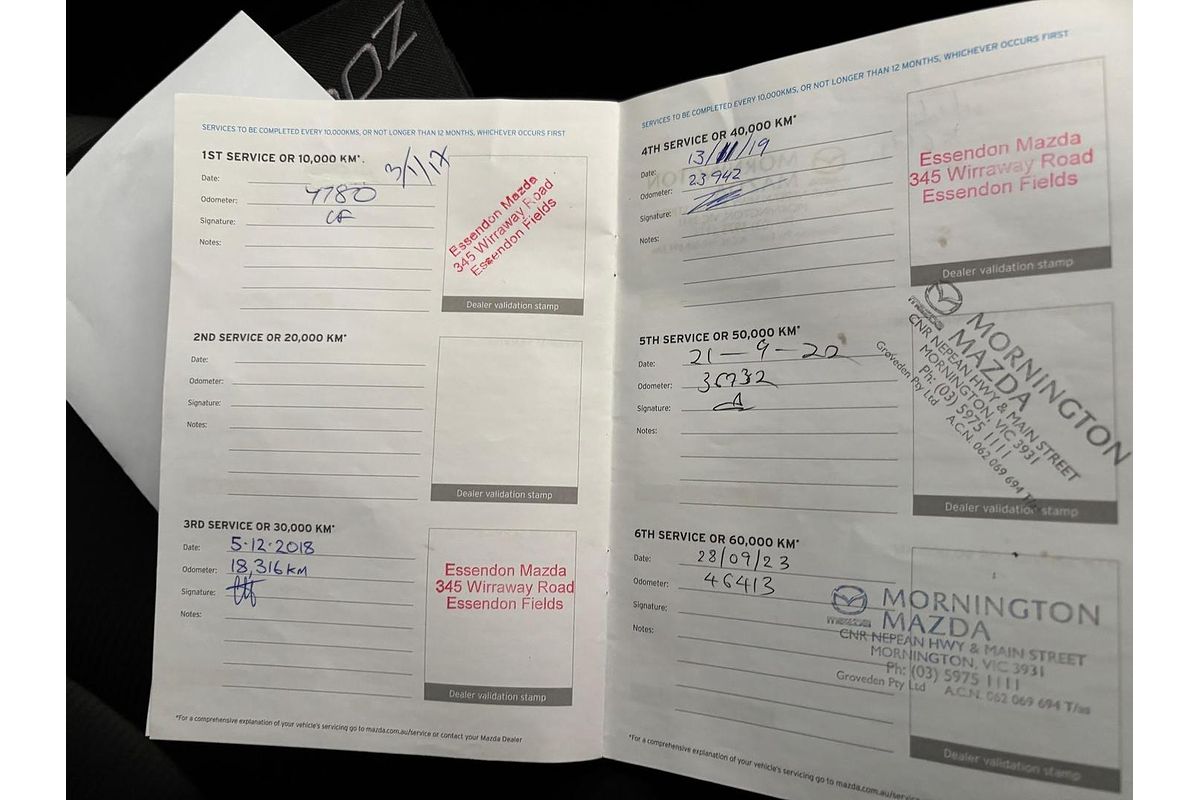 OZ
SERVICES TO BE COMPLETED EVERY 10,000KMS, OR NOT LONGER THAN 12 MONTHS, WHICHEVER OCCURS FIRST
1ST SERVICE OR 10,000 KM*.
3/1/17
Date:
Odometer: 4780
Signature: CF
Notes:
Essendon Mazda
345 Wirraway Road
Essendon Fields
Dealer validation stamp
2ND SERVICE OR 20,000 KM*
Date:
Odometer:
Signature:
Notes:
Dealer validation stamp
3RD SERVICE OR 30,000 KM*
Date: 5-12-2018
Odometer: 18,316KM
Signature:
Notes:
Essendon Mazda
345 Wirraway Road
Essendon Fields
Dealer validation stamp
*For a comprehensive explanation of your vehicle's servicing go to mazda.com.au/service or contact your Mazda Dealer
SERVICES TO BE COMPLETED EVERY 10,000KMS, OR NOT LONGER THAN 12 MONTHS, WHICHEVER OCCURS FIRST
4TH SERVICE OR 40,000 KM*
Date: 13/11/19
Odometer: 23942
Signature:
Notes:
Essendon Mazda
345 Wirraway Road
Essendon Fields
Dealer validation stamp
5TH SERVICE OR 50,000 KM*
Date: 21-9-20
Odometer:
Signature:
Notes:
MORNINGTON
MAZDA
CNR NEPEAN HWY & MAIN STREET
MORNINGTON, VIC 3931
Ph: (03) 5975 1111
Groveden Pty Ltd A.C.N. 062 069 694 T/as
Dealer validation stamp
6TH SERVICE OR 60,000 KM*
Date: 28/09/23
Odometer: 46413
Signature:
Notes:
MORNINGTON
mazda MAZDA
CNR NEPEAN HWY & MAIN STREET
MORNINGTON, VIC 3931
Ph: (03) 5975 1111
Groveden Pty Ltd A.C.N. 062 069 694 T/as
Dealer validation stamp
*For a comprehensive explanation of your vehicle's servicing go to mazda.com.au/service